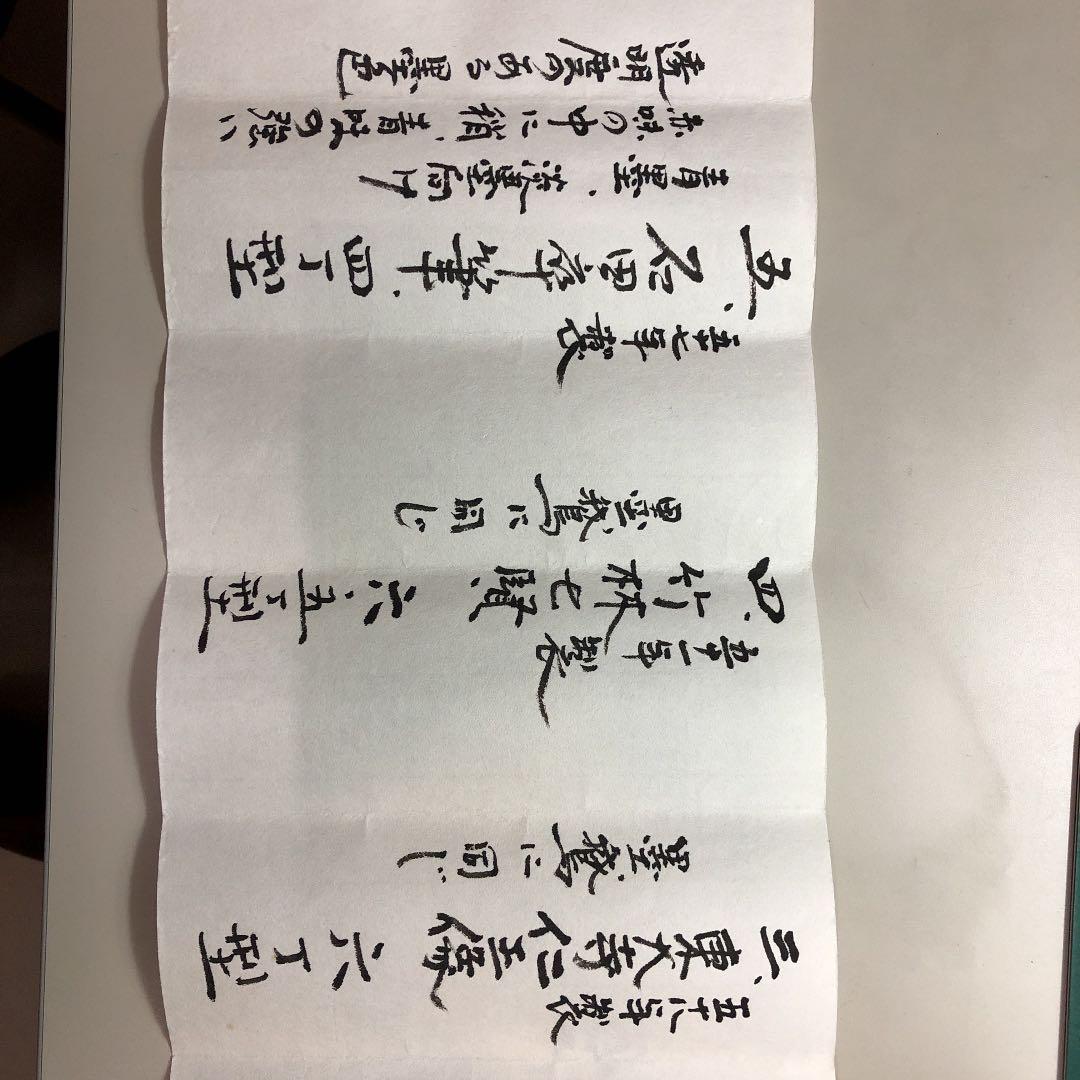 五十八年製
三、東大寺仁王像 六丁型
墨鵞に同じ
五十一年製
四、竹林七賢 六・五丁型
墨鵞に同じ
五十七年製
五、石田 筆 四丁型
青墨、淡墨向け
赤味の中に稍、青味の強い
透明度のある墨色